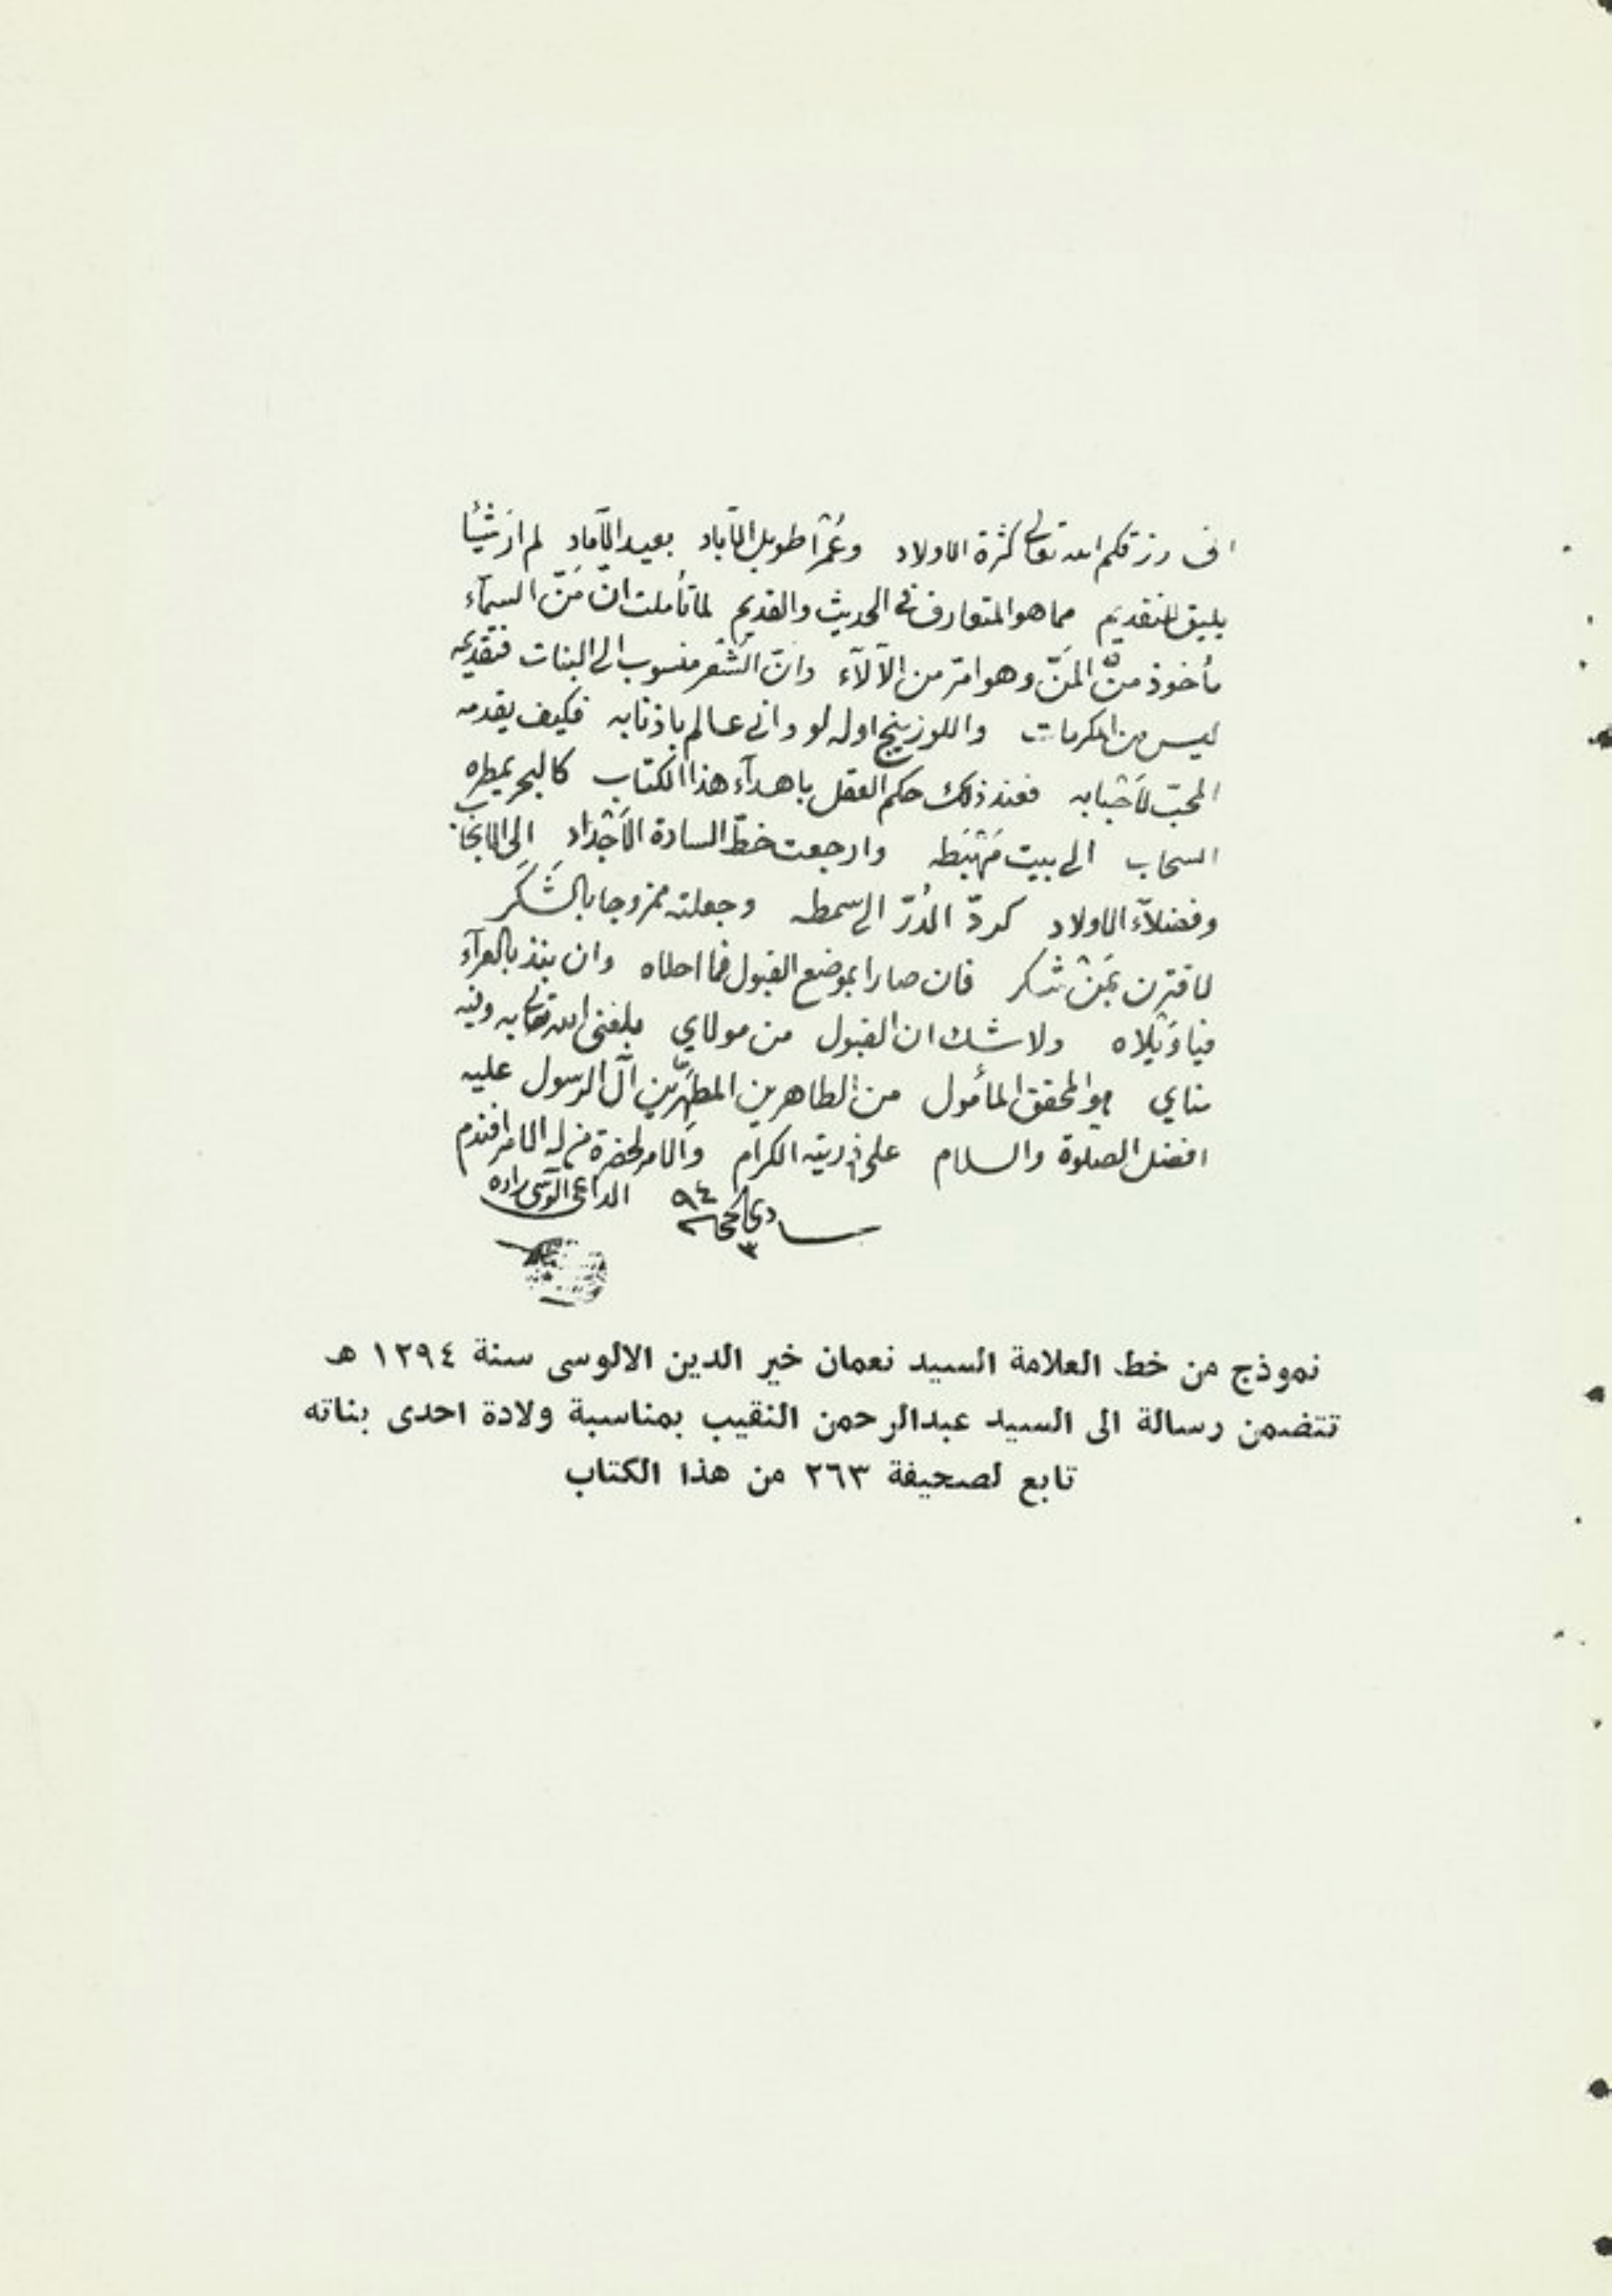 اني رزقكم الله تعالى كثرة الاولاد وعُمْرًا طويل الآباد بعيد الآماد لم ارَ شيئًا
يليق للتقديم مما هو المتعارف في الحديث والقديم لما تأملت انّ مَنّ السمآء
مأخوذ منْ المَنّ وهو امرّ من الآلآء وانّ الشَّكَر منسوب الى البنات فتقديمه
ليس من المكرمات واللوزينج اوله لو واني عالم باذنابه فكيف يقدمه
المحبّ لأحْبابه فعند ذلك حكم العقل باهدآء هذا الكتاب كالبحر يمطره
السحاب الى بيت مَهْبَطه وارجعت خطّ السادة الأجْدَاد الى الانجاب
وفضلآء الاولاد كردّ الدُرّ الى سمطه وجعلته ممزوجا بالشَكَر
لاقترن بمَنْ شكر فان صارا بموضع القبول فما احلاه وان ينبذ بالعرآء
فيا وَيْلاه ولا شك ان القبول من مولاي بلغني الله تعالى به وفيه
مناي هو المحقق المأمول من الطاهرين المطهَّرين آل الرسول عليه
افضل الصلوة والسلام على ذريته الكرام والامر لحضرة من له الامر افندم
٩٤ الداعي آلوسي زاده
نموذج من خط العلامة السيد نعمان خير الدين الالوسى سنة ١٢٩٤ هـ
تتضمن رسالة الى السيد عبدالرحمن النقيب بمناسبة ولادة احدى بناته
تابع لصحيفة ٢٦٣ من هذا الكتاب